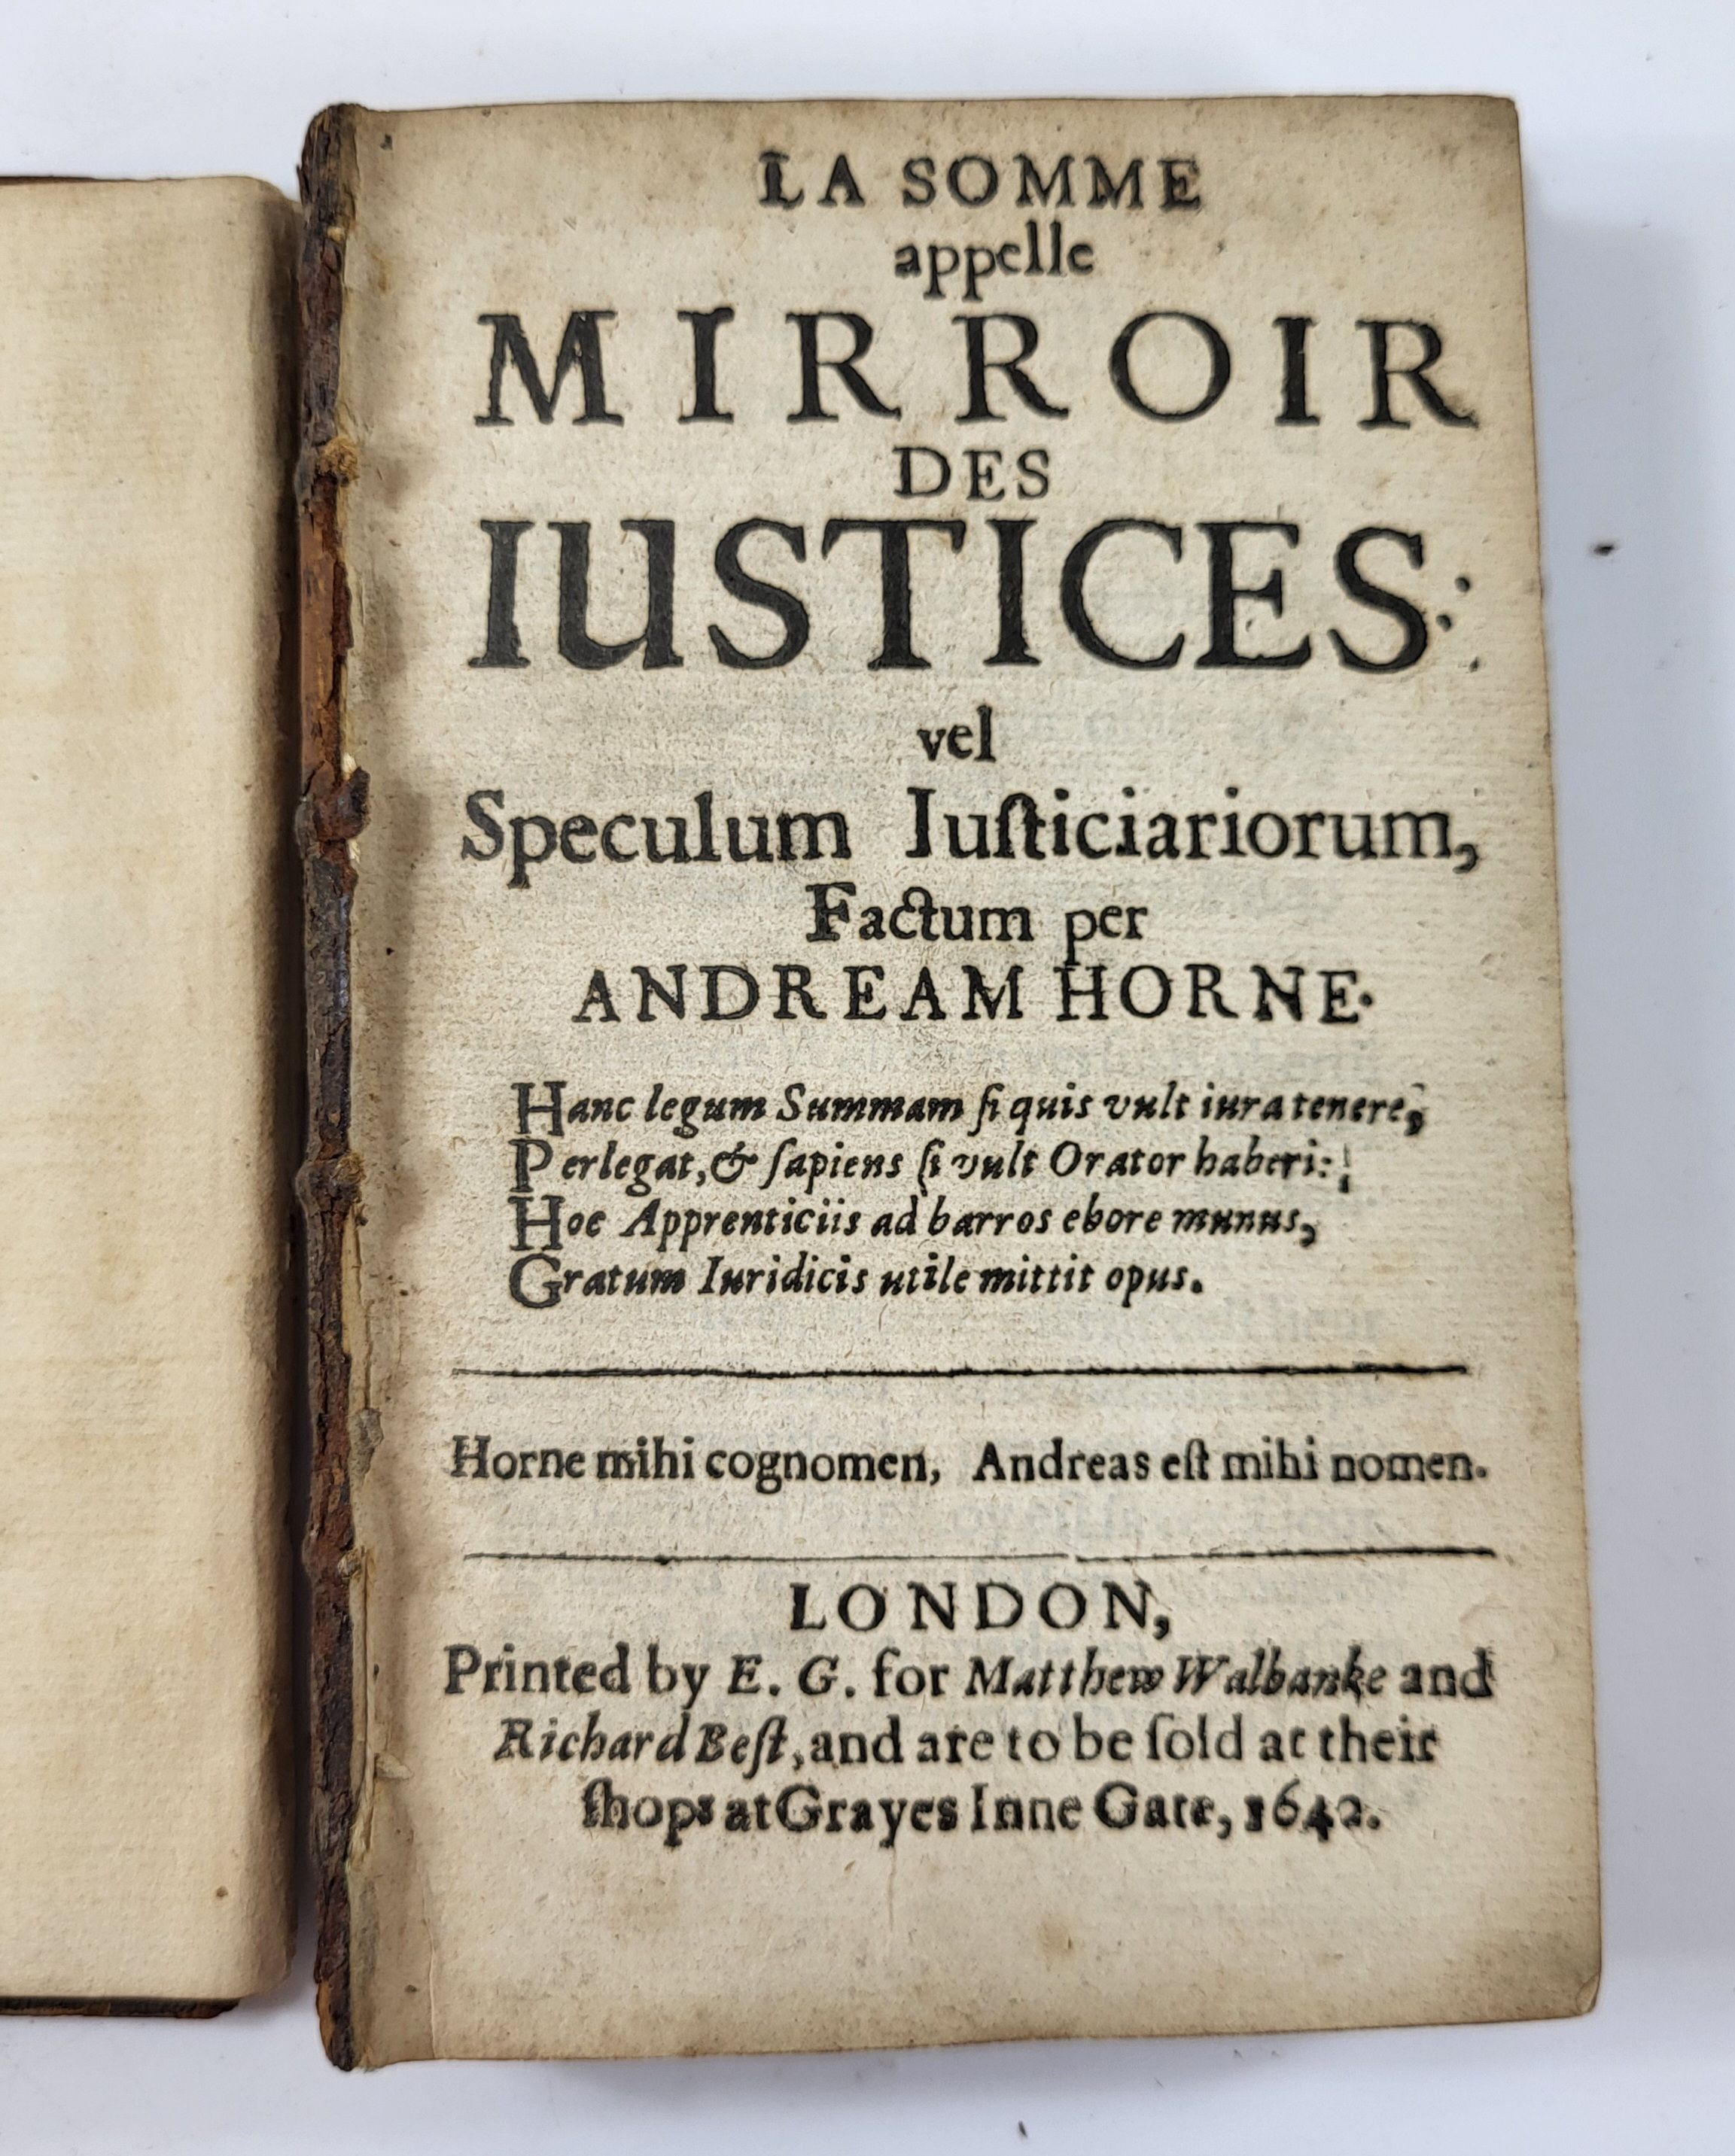 LA SOMME
appelle
MIRROIR
DES
IUSTICES:
vel
Speculum Iuſticiariorum,
Factum per
ANDREAM HORNE.
Hanc legum Summam ſi quis vult iura tenere,
Perlegat, & ſapiens ſi vult Orator haberi:
Hoe Apprenticiis ad barros ebore munus,
Gratum Iuridicis utile mittit opus.
Horne mihi cognomen, Andreas eſt mihi nomen.
LONDON,
Printed by E. G. for Matthew Walbanke and
Richard Beſt, and are to be ſold at their
ſhops at Grayes Inne Gate, 1642.